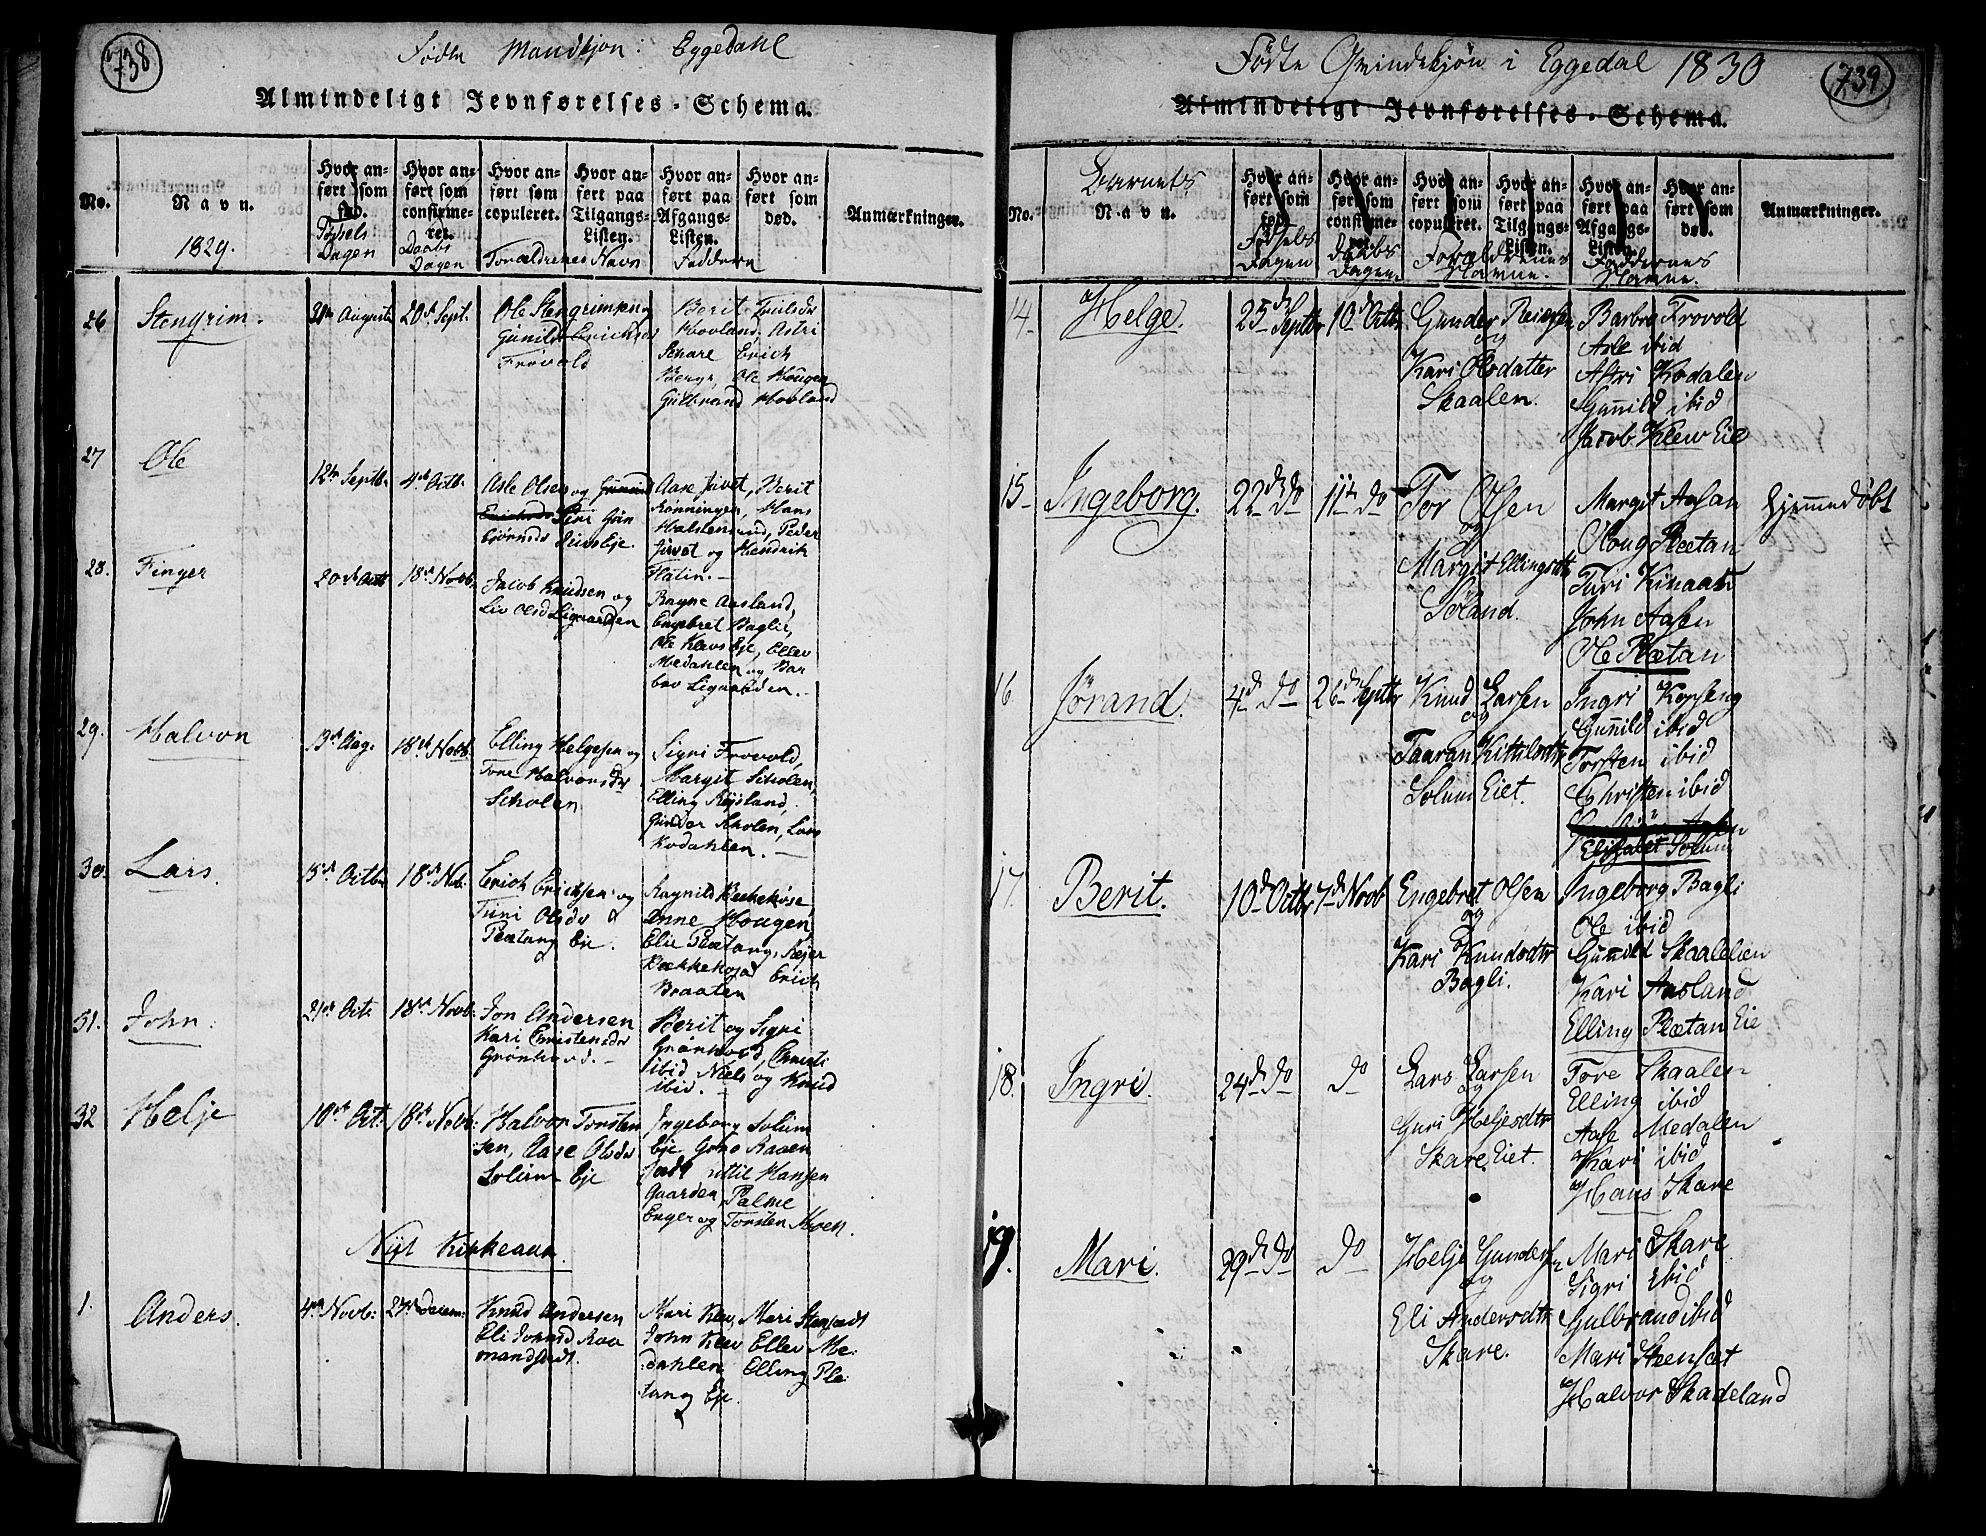 738
Fødte Mandkjøn: Eggedahl
Almindeligt Jevnførelses-Schema.
No.
Navn.
1829.
Hvor anført som fød.
Fødsels Dagen
Hvor anført som confirmeret.
Daabs Dagen
Hvor anført som copuleret.
Hvor anført paa Tilgangs-Listen.
Forældrenes Navn
Hvor anført paa Afgangs-Listen.
Hvor anført som død.
Faddere
Anmærkninger.
26
Stengrim.
21de August
20de Sept.
Ole Stengrimsen
Gunild Erichsd
Frøvold
Berit
Hovland, Astri
Skare Erich
Berge, Ole Hougen
Gulbrand Hovland
27
Ole
12te Septb.
4de Octb.
Asle Olsen og
Siri Grim
bjørnsd
Aase Juvet, Berit
Rønningen, Hans
Halstensrud, Peder
Juvet og Hendrik
Flatin.
28.
Finger
20de Octb
18de Novb.
Jacob Knudsen og
Liv Olsd Ligaarden
Ragne Aasland,
Engebret Baglie,
Ole Klevs Eje, Ellev
Medahlen og Bar
bro Ligaarden.
29.
Halvon
13de Aug.
18de Novb.
Elling Helgesen og
Tone Halvorsdr
Scholen
Sigri Frovold,
Margit Scholen,
Elling Røjsland,
Gunder Skolen, Lars
Kodahlen.
30.
Lars
15de Octb
18de Nob.
Erich Erichsen og
Turi Olsdr
Plætang Eje.
Ragnild Bækkehøse
Anne Hougen,
Elie Plætang, Rejer
Bækkehøjad Erich
Braaten
31.
John.
21de Oct:
18de Novb:
Jon Andersen
Kari Christensdr
Grønhovd.
Berit og Sigri
Grønhovd, Christi
ibid Niels og Knud
ibid.
32
Helje
10de Oct:
18de Novb:
Halvor Torsten
sen, Aase Olsdr
Solium Eje
Ingeborg Solum
Eje, Gono Raaen
Kittil Hansen
Gaarden, Palme
Enger og Torsten Moen.
Nyt Kirkeaar.
1.
Anders.
4de Novb:
27de Decem:
Knud Andersen
Eli Jonsd Raa
mandsædt.
Mari Klev, Mari Stensædt
John Klev Ellev Me:
dahlen Elling Ple
tang Eje.
739
Fødte Qvindekjøn i Eggedal 1830
Almindeligt Jevnførelses-Schema.
No.
Barnets
Navn.
Hvor anført som fød.
Fødsels Dagen
Hvor anført som confirmeret.
Daabs Dagen
Hvor anført som copuleret.
Hvor anført paa Tilgangs-Listen.
Forældrenes Navne.
Hvor anført paa Afgangs-Listen.
Hvor anført som død.
Faddernes Navne.
Anmærkninger.
14.
Helge.
25de Septbr
10de Octbr
Gunder Reiersen
og
Kari Olsdatter
Skaalen.
Barbro Frovold
Asle ibid
Astri Kodalen
Gunild ibid
Jacob Klew Eie
15.
Ingeborg.
22de do
11te do
Tor Olsen
og
Margit Ellingsdtr
Søland.
Margit Aasen
Oloug Plætan
Turi Kinaasd
John Aasen
Ole Plætan
Hjemmedøbt
16
Jørand.
4de do
26de Septbr
Knud Larsen
og
Taaran Kittilsdtr
Solum Eiet.
Ingri Kopseng
Gunild ibid
Torsten ibid
Christen ibid
Elisabet Solum
17.
Berit.
10de Octbr
7de Novb
Engebret Olsen
og
Kari Knudsdtr
Bagli.
Ingeborg Bagli
Ole ibid
Gunild Skaalelien
Kari Aasland
Elling Plætan Eie
18.
Ingri.
24de do
do
Lars Larsen
og
Guri Heljesdtr
Skare Eiet.
Tore Skaalen
Elling ibid
Aase Medalen
Kari ibid
Hans Skare
19.
Mari.
29de do
do
Helje Gundersen
og
Eli Andersdtr
Skare.
Mari Skare
Sigri Ibid
Gulbrand ibid
Mari Steenset
Halvor Skadeland